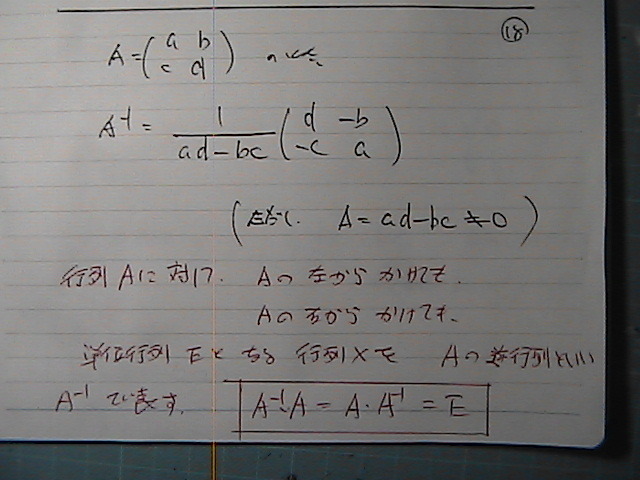 ⑱
A = ( a b
c d ) のとき、
A⁻¹ = 1 / ad-bc ( d -b
-c a )
(ただし、 A = ad-bc ≠ 0 )
行列 Aに 対して、 Aの 左から かけても、
Aの 右から かけても、
単位行列 Eとなる 行列Xを Aの逆行列といい
A⁻¹ で表す。 A⁻¹・A = A・A⁻¹ = E